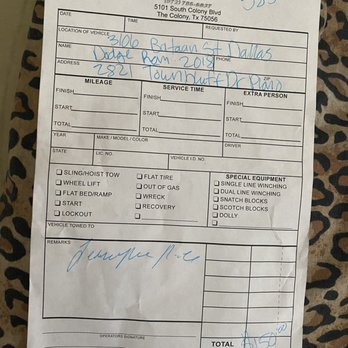 5101 South Colony Blvd
The Colony, Tx 75056
DATE TIME REQUESTED BY
LOCATION OF VEHICLE 3106 St Dallas
NAME Dodge Ram 2018 PHONE
ADDRESS 2821 Townbluff Dr Plano
MILEAGE SERVICE TIME EXTRA PERSON
FINISH FINISH FINISH
START START START
TOTAL TOTAL TOTAL
YEAR MAKE / MODEL / COLOR DRIVER
STATE LIC. NO. VEHICLE I.D. NO.
SLING/HOIST TOW FLAT TIRE SPECIAL EQUIPMENT
WHEEL LIFT OUT OF GAS SINGLE LINE WINCHING
FLAT BED/RAMP WRECK DUAL LINE WINCHING
START RECOVERY SNATCH BLOCKS
LOCKOUT SCOTCH BLOCKS
DOLLY
VEHICLE TOWED TO
REMARKS
OPERATORS SIGNATURE
TOTAL 150.00